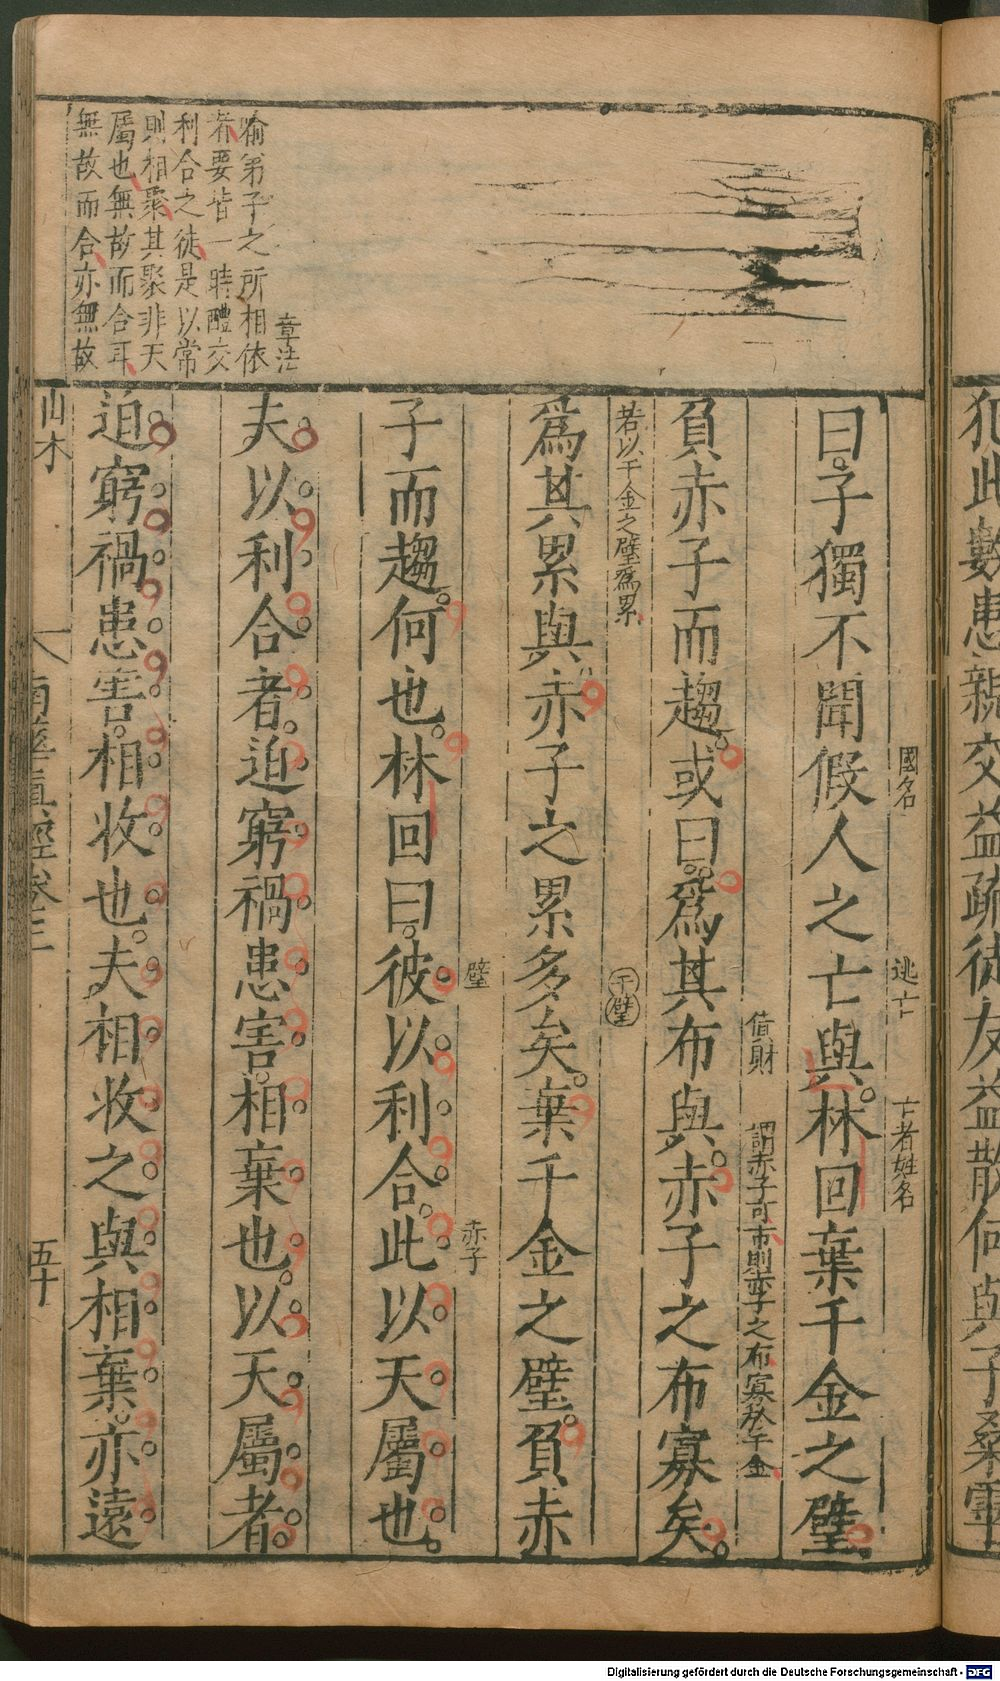 犯此數患親交益疏徒友益散何與子桑雽
國名
逃亡
亡者姓名
曰子獨不聞假人之亡與林回棄千金之璧
值財
謂赤子可市則赤子之布寡於千金
負赤子而趨或曰爲其布與赤子之布寡矣
若以千金之璧爲累
千璧
爲其累與赤子之累多矣棄千金之璧負赤
璧
赤子
子而趨何也林回曰彼以利合此以天屬也
夫以利合者迫窮禍患害相棄也以天屬者
迫窮禍患害相收也夫相收之與相棄亦遠
章法
喻弟子之所相依
者要皆一時醴交
利合之徒是以常
則相聚其聚非天
屬也無故而合耳
無故而合亦無故
山木
南華真經卷三
五十
Digitalisierung gefördert durch die Deutsche Forschungsgemeinschaft - DFG